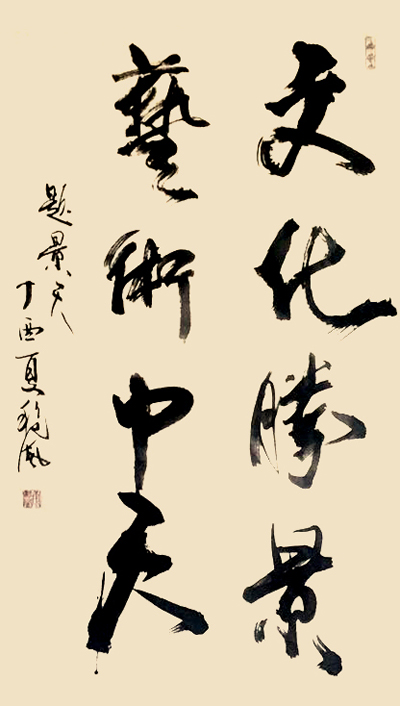 文化勝景
藝術中天
題景天
丁酉夏